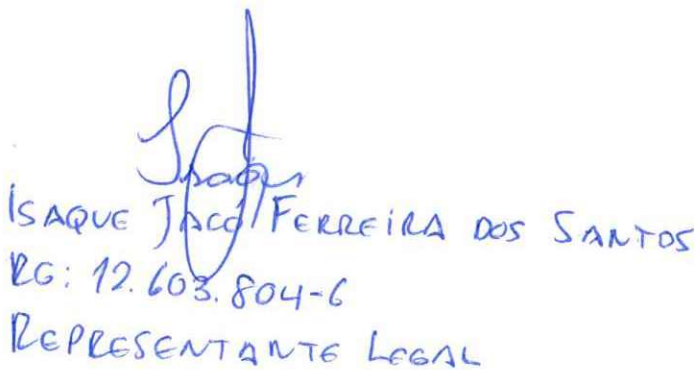 Isaque
ISAQUE JACÓ FERREIRA DOS SANTOS
RG: 12.603.804-6
REPRESENTANTE LEGAL